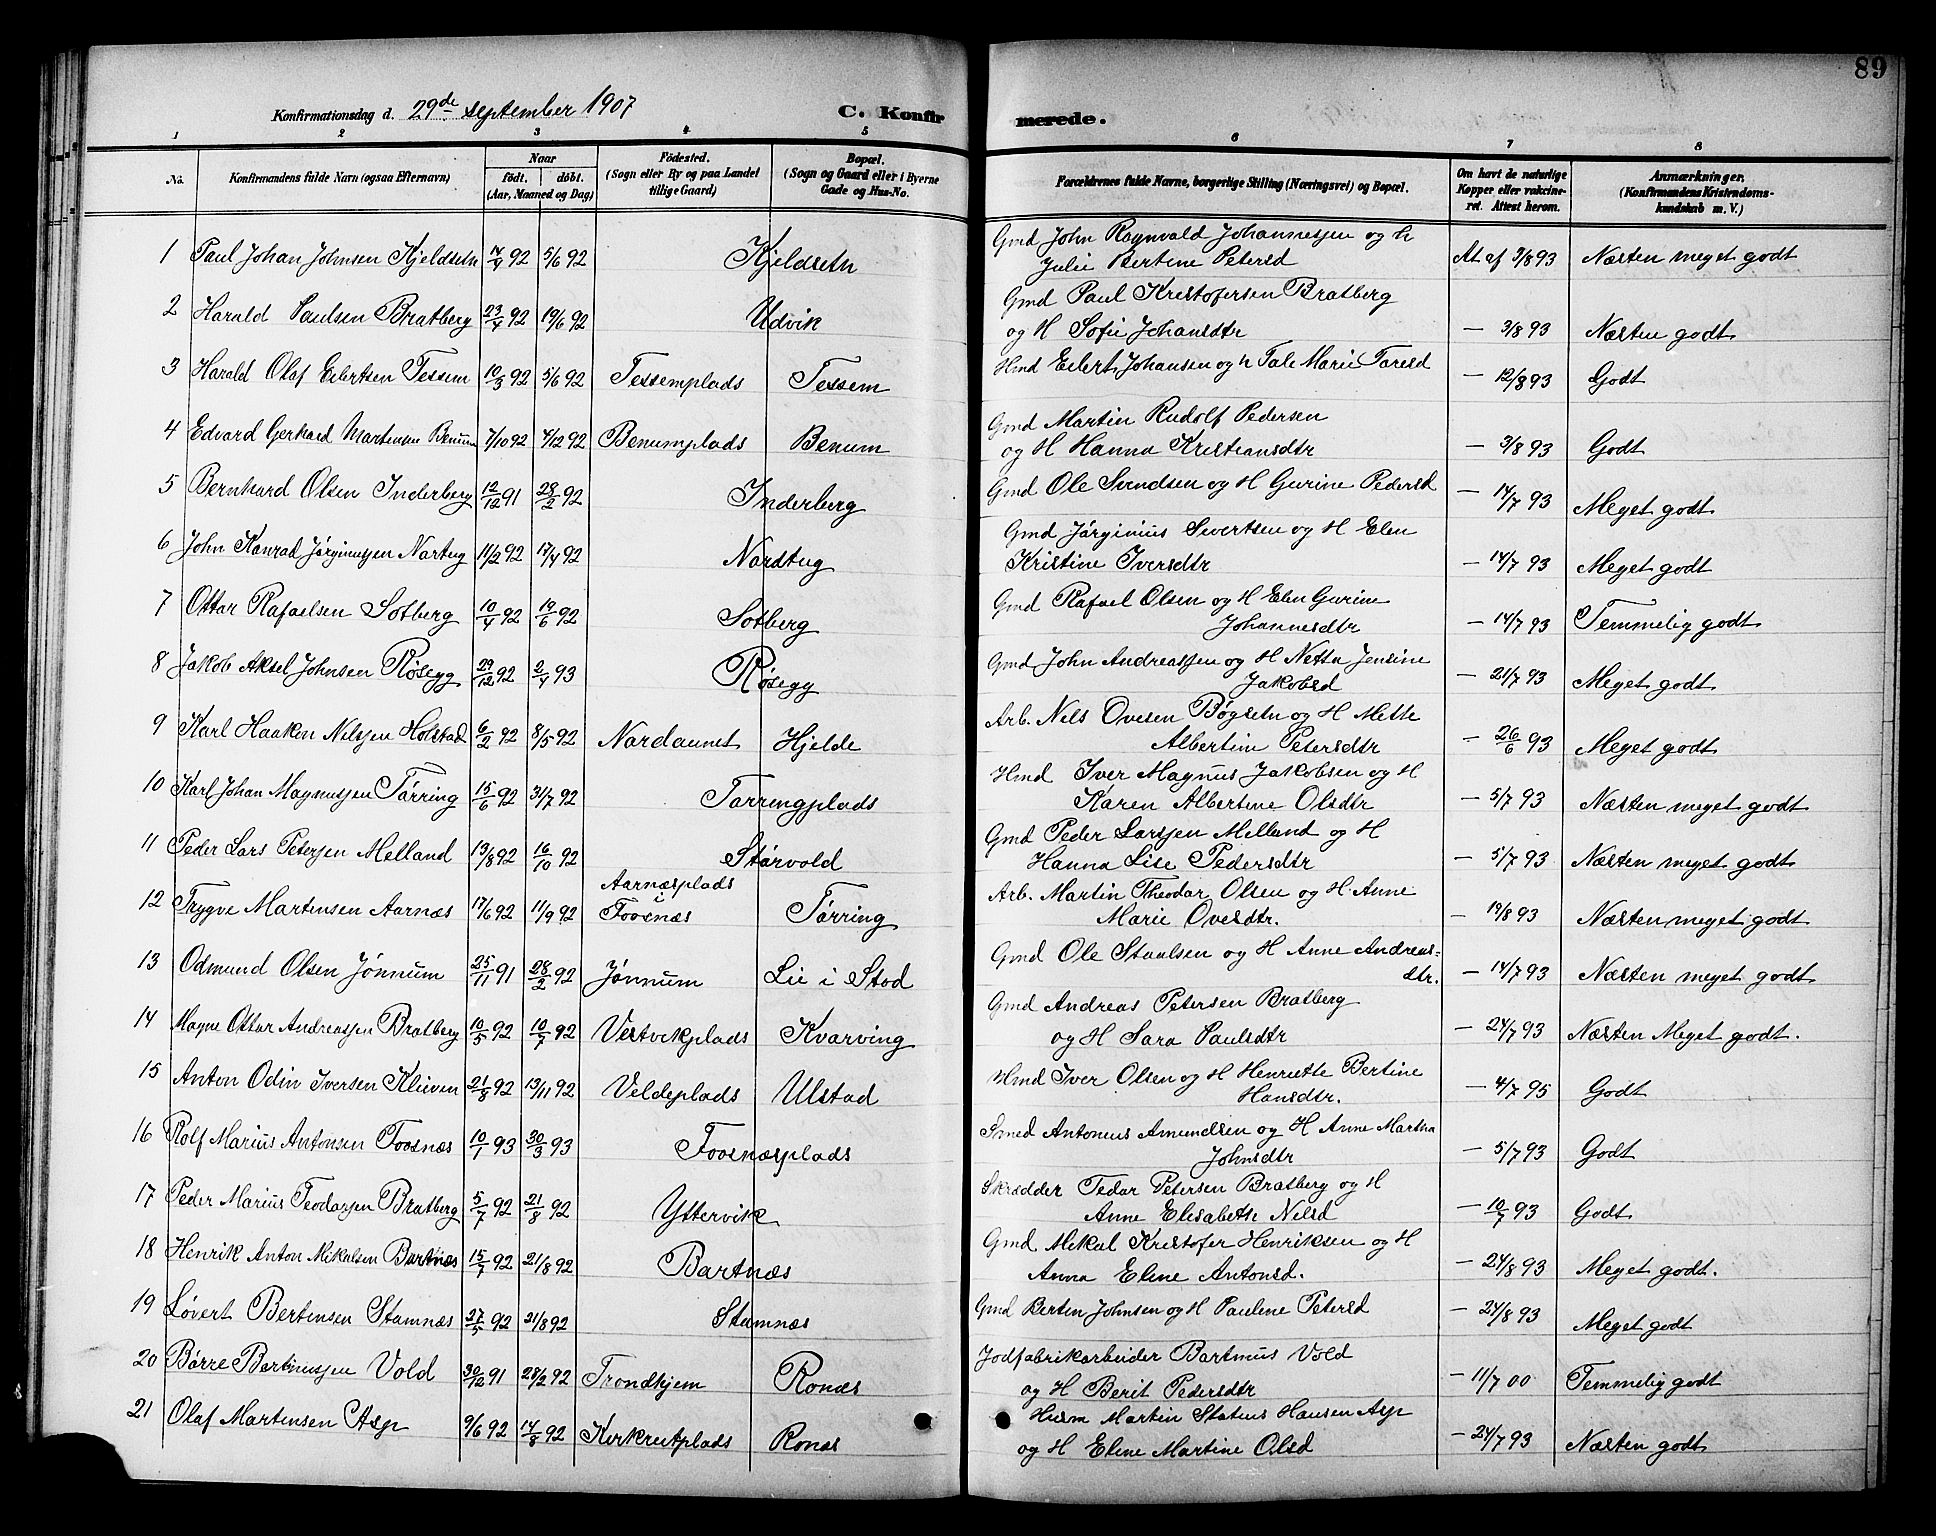 89
Konfirmationsdag d. 29de september 1907
C. Konfirmerede.
1 2 3 4 5 6 7 8
No. Konfirmandens fulde Navn (ogsaa Efternavn) Naar født. døbt. (Aar, Maaned og Dag) Födested. (Sogn eller By og paa Landet tillige Gaard) Bopæl. (Sogn og Gaard eller i Byerne Gade og Hus-No. Forældrenes fulde Navne, borgerlige Stilling (Næringsvei) og Bopæl. Om havt de naturlige Kopper eller vakcineret. Attest herom. Anmærkninger. (Konfirmandens Kristendomskundskab m. V.)
1 Paul Johan Johnsen Kjeldsetn 92 5/6 92 Kjeldsetn Gmd John Ragnvald Johannesjen og h
Julie Bertine Petersd At af 3/8 93 Næsten meget godt
2 Harald Paulsen Bratberg 23/4 92 19/6 92 Udvik Gmd Paul Kristofersen Bratberg
og H Sofie Johansdtr – 3/8 93 Næsten godt
3 Harald Olaf Eilertsen Tessem 10/3 92 5/6 92 Tessemplads Tessem Hmd Eilert Johansen og h Tale Marie Toresd – 12/8 93 Godt
4 Edvard Gerhard Martinsen Benum 7/10 92 4/12 92 Benumplads Benum Gmd Martin Rudolf Pedersen
og H Hanna Kristiansdtr – 3/8 93 Godt
5 Bernhard Olsen Inderberg 12/12 91 28/2 92 Inderberg Gmd Ole Svendsen og H Gurine Pedersd – 14/7 93 Meget godt
6 John Konrad Jørginusjen Nartug 11/2 92 17/4 92 Nordtug Gmd Jørginius Sivertsen og H Elen
Kristine Iversdtr – 14/7 93 Meget godt
7 Ottar Rafaelsen Sotberg 10/4 92 19/6 92 Sotberg Gmd Rafael Olsen og H Elen Gurine
Johannesdtr – 14/7 93 Temmelig godt
8 Jakob Aksel Johnsen Røsegg 29/12 92 2/4 93 Røsegg Gmd John Andreasjen og H Netta Jensine
Jakobsd – 21/7 93 Meget godt
9 Karl Haaken Nilsjen Holstad 6/2 92 8/5 92 Nordaunet Hjelde Arb. Nels Ovesen Bøgsetn og H Mette
Albertine Petersdtr – 26/6 93 Meget godt
10 Karl Johan Magnusjen Tørring 15/6 92 31/7 92 Tørringplads Hmd Iver Magnus Jakobsen og H
Karen Albertine Olsdtr – 5/7 93 Næsten meget godt
11 Peder Lars Petersjen Melland 13/8 92 16/10 92 Størvold Gmd Peder Larsjen Melland og H
Hanna Lise Pedersdtr – 5/7 93 Næsten meget godt
12 Trygve Martensen Aarnæs 17/6 92 11/9 92 Aarnæsplads i Foosnæs Tørring Arb. Martin Theodor Olsen og H Anne
Marie Ovesdtr. – 19/8 93 Næsten meget godt
13 Odmund Olsen Jønnum 25/11 91 28/2 92 Jønnum Lie i Stod Gmd Ole Staalsen og H Anne Andreas-
dtr. – 14/7 93 Næsten meget godt
14 Magne Ottar Andreasjen Bratberg 10/5 92 10/7 92 Vestvikplads Kvarving Gmd Andreas Petersen Bratberg
og H Sara Paulsdtr – 24/7 93 Næsten Meget godt.
15 Anton Odin Iversen Klüven 21/8 92 13/11 92 Veldeplads Ulstad Hmd Iver Olsen og H Henriette Bertine
Hansdtr. – 4/7 95 Godt
16 Rolf Marius Antonsen Foosnæs 10/1 93 30/3 93 Foosnæsplads Smed Antoneus Amundsen og H Anne Martha
Johnsdtr – 5/7 93 Godt
17 Peder Marius Teodorsjen Bratberg 5/7 92 21/8 92 Yttervik Skrædder Tedor Petersen Bratberg og H
Anne Elisabeth Nelsd – 10/7 93 Godt
18 Henrik Anton Mikalsen Bartnæs 15/7 92 21/8 92 Bartnæs Gmd Mikal Kristofer Henriksen og H
Anna Eline Antonsd. – 24/8 93 Meget godt.
19 Løvert Bertinsen Stamnæs 27/5 92 21/8 92 Stamnæs Gmd Berten Johnsen og H Pauline Petersd – 24/8 93 Meget godt
20 Børre Bartinusjen Vold 30/12 91 28/2 92 Trondhjem Ronæs Jodfabrikarbeider Bartinus Vold
og H Berit Pedersdtr – 11/7 00 Temmelig godt
21 Olaf Martensen Asp 9/6 92 14/8 92 Kirkreitplads Ronæs Husm Martin Statius Hansen Asp
og H Eline Martine Olsd – 24/7 93 Næsten godt